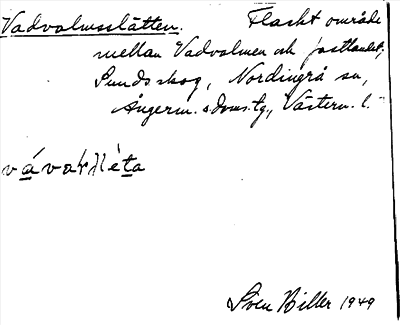 Vadvalmsslåtten. Flackt område
mellan Vadvalmen och fastlandet,
Sundsskog, Nordingrå sn,
Ångerm. s doms.tg., Västern. l.
Sven Hiller 1949